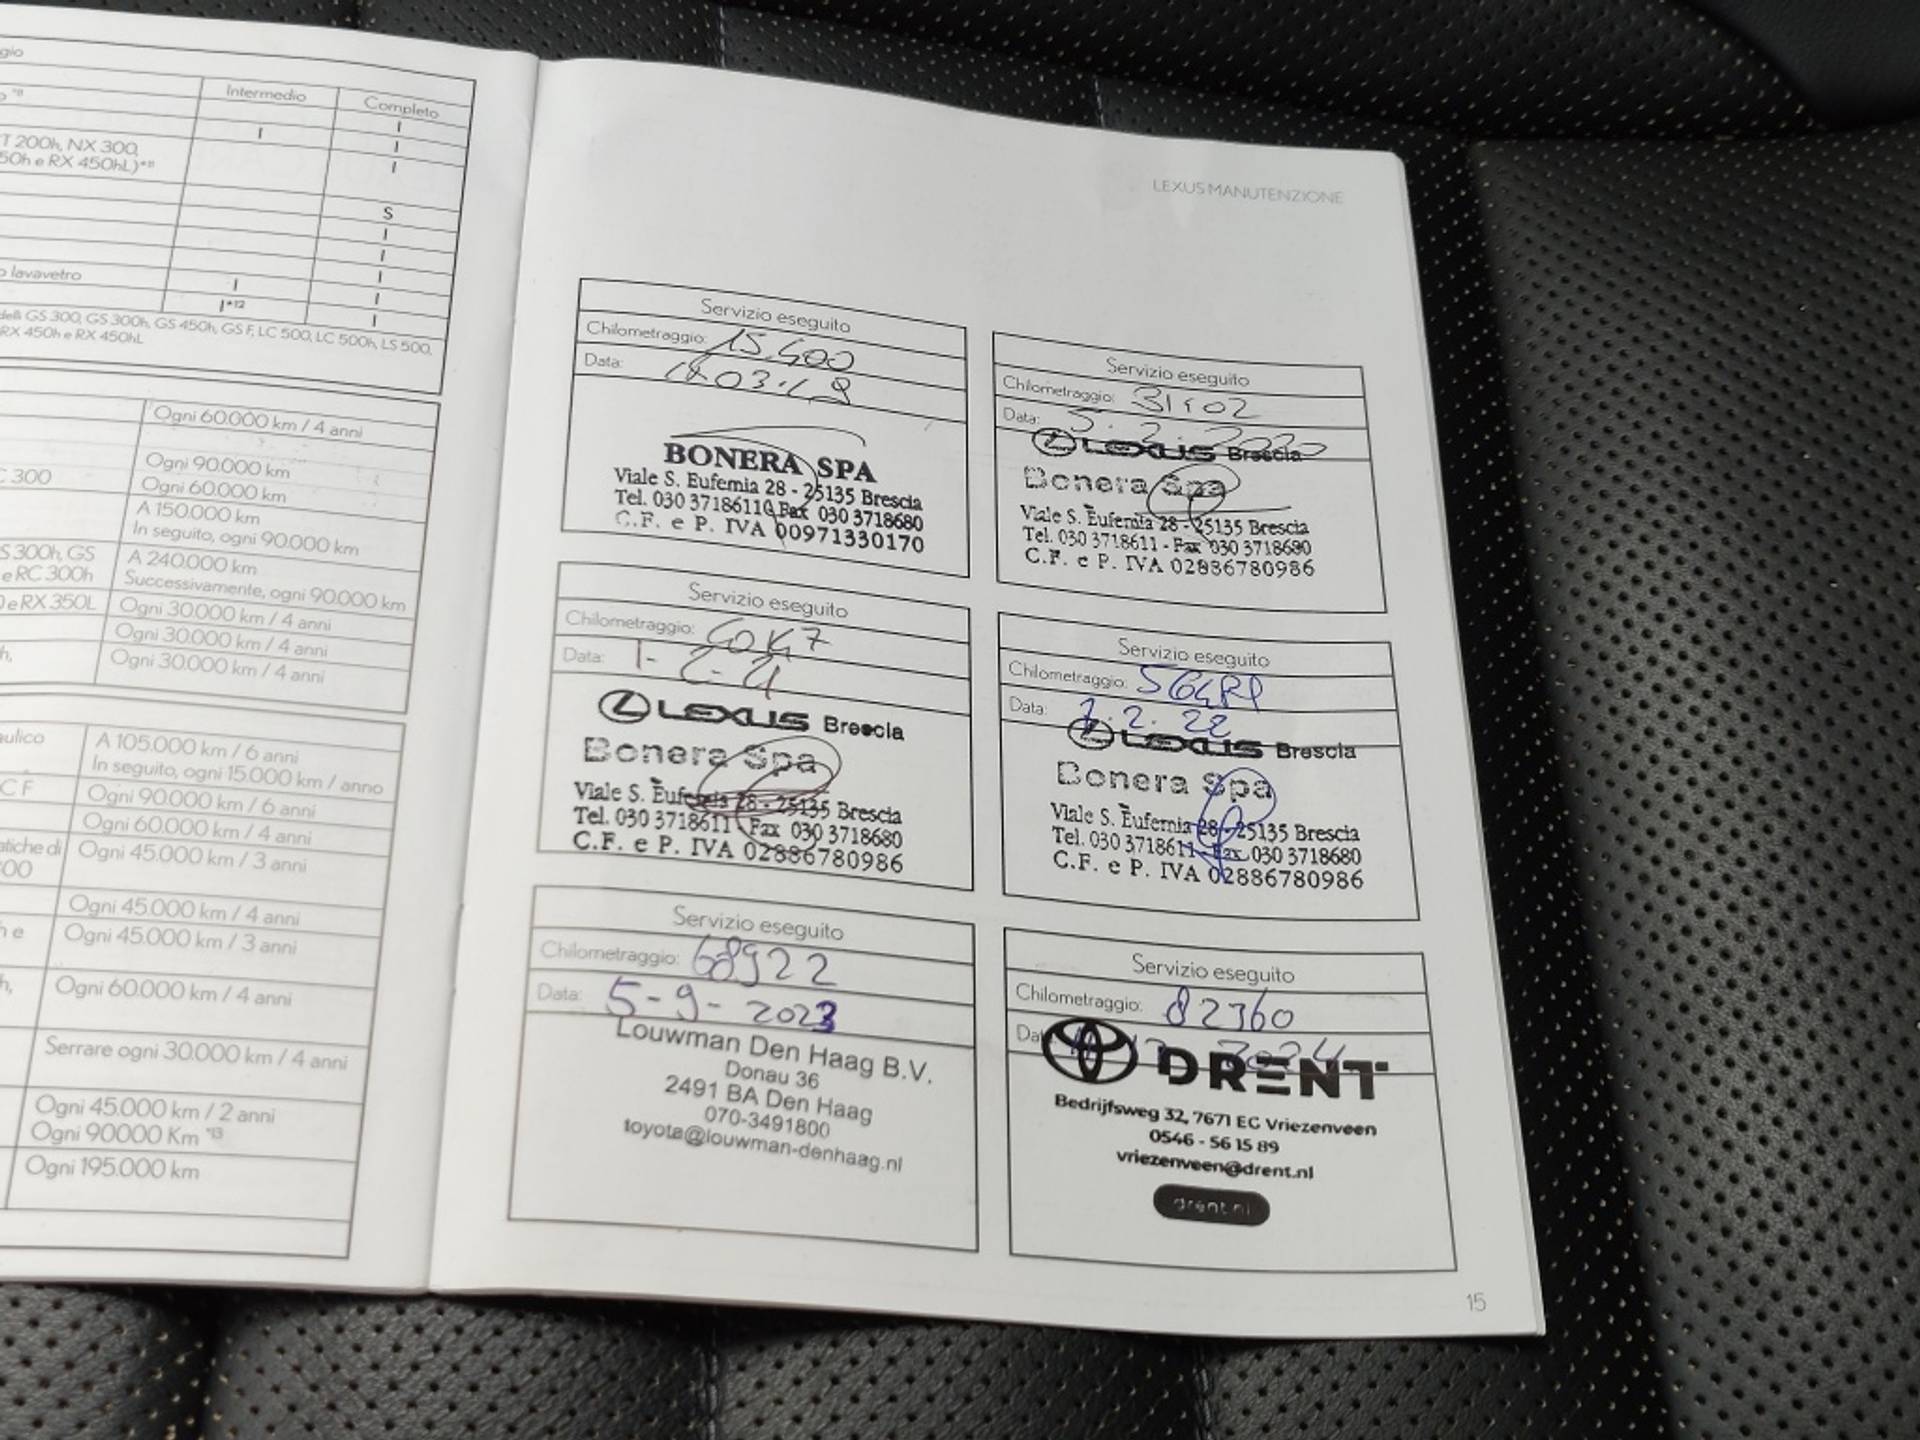 gio
Intermedio
Completo
o *11
I
I
I
T 200h, NX 300,
50h e RX 450hL)*11
I
S
I
I
I
o lavavetro
I
I
I*12
I
GS 300, GS 300h, GS 450h, GS F, LC 500, LC 500h, LS 500,
RX 450h e RX 450hL
Ogni 60.000 km / 4 anni
Ogni 90.000 km
C 300
Ogni 60.000 km
A 150.000 km
In seguito, ogni 90.000 km
S 300h, GS
e RC 300h
A 240.000 km
Successivamente, ogni 90.000 km
e RX 350L
Ogni 30.000 km / 4 anni
Ogni 30.000 km / 4 anni
h,
Ogni 30.000 km / 4 anni
aulico
A 105.000 km / 6 anni
In seguito, ogni 15.000 km / anno
C F
Ogni 90.000 km / 6 anni
Ogni 60.000 km / 4 anni
atiche di
Ogni 45.000 km / 3 anni
Ogni 45.000 km / 4 anni
h e
Ogni 45.000 km / 3 anni
h,
Ogni 60.000 km / 4 anni
Serrare ogni 30.000 km / 4 anni
Ogni 45.000 km / 2 anni
Ogni 90000 Km *13
Ogni 195.000 km
LEXUS MANUTENZIONE
Servizio eseguito
Chilometraggio: 15.400
Data:
BONERA SPA
Viale S. Eufemia 28 - 25135 Brescia
Tel. 030 3718611 Fax 030 3718680
C.F. e P. IVA 00971330170
Servizio eseguito
Chilometraggio:
Data: 5.2.2020
LEXUS Brescia
Bonera Spa
Viale S. Eufemia 28 - 25135 Brescia
Tel. 030 3718611 - Fax 030 3718680
C.F. e P. IVA 02886780986
Servizio eseguito
Chilometraggio:
Data: 1-2-21
LEXUS Brescia
Bonera Spa
Viale S. Eufemia 28 - 25135 Brescia
Tel. 030 3718611 Fax 030 3718680
C.F. e P. IVA 02886780986
Servizio eseguito
Chilometraggio:
Data: 2.22
LEXUS Brescia
Bonera Spa
Viale S. Eufemia 28 - 25135 Brescia
Tel. 030 3718611 - Fax 030 3718680
C.F. e P. IVA 02886780986
Servizio eseguito
Chilometraggio: 68922
Data: 5-9-2023
Louwman Den Haag B.V.
Donau 36
2491 BA Den Haag
070-3491800
toyota@louwman-denhaag.nl
Servizio eseguito
Chilometraggio: 82360
Dat 2024
DRENT
Bedrijfsweg 32, 7671 EG Vriezenveen
0546 - 56 15 89
vriezenveen@drent.nl
drent.nl
15